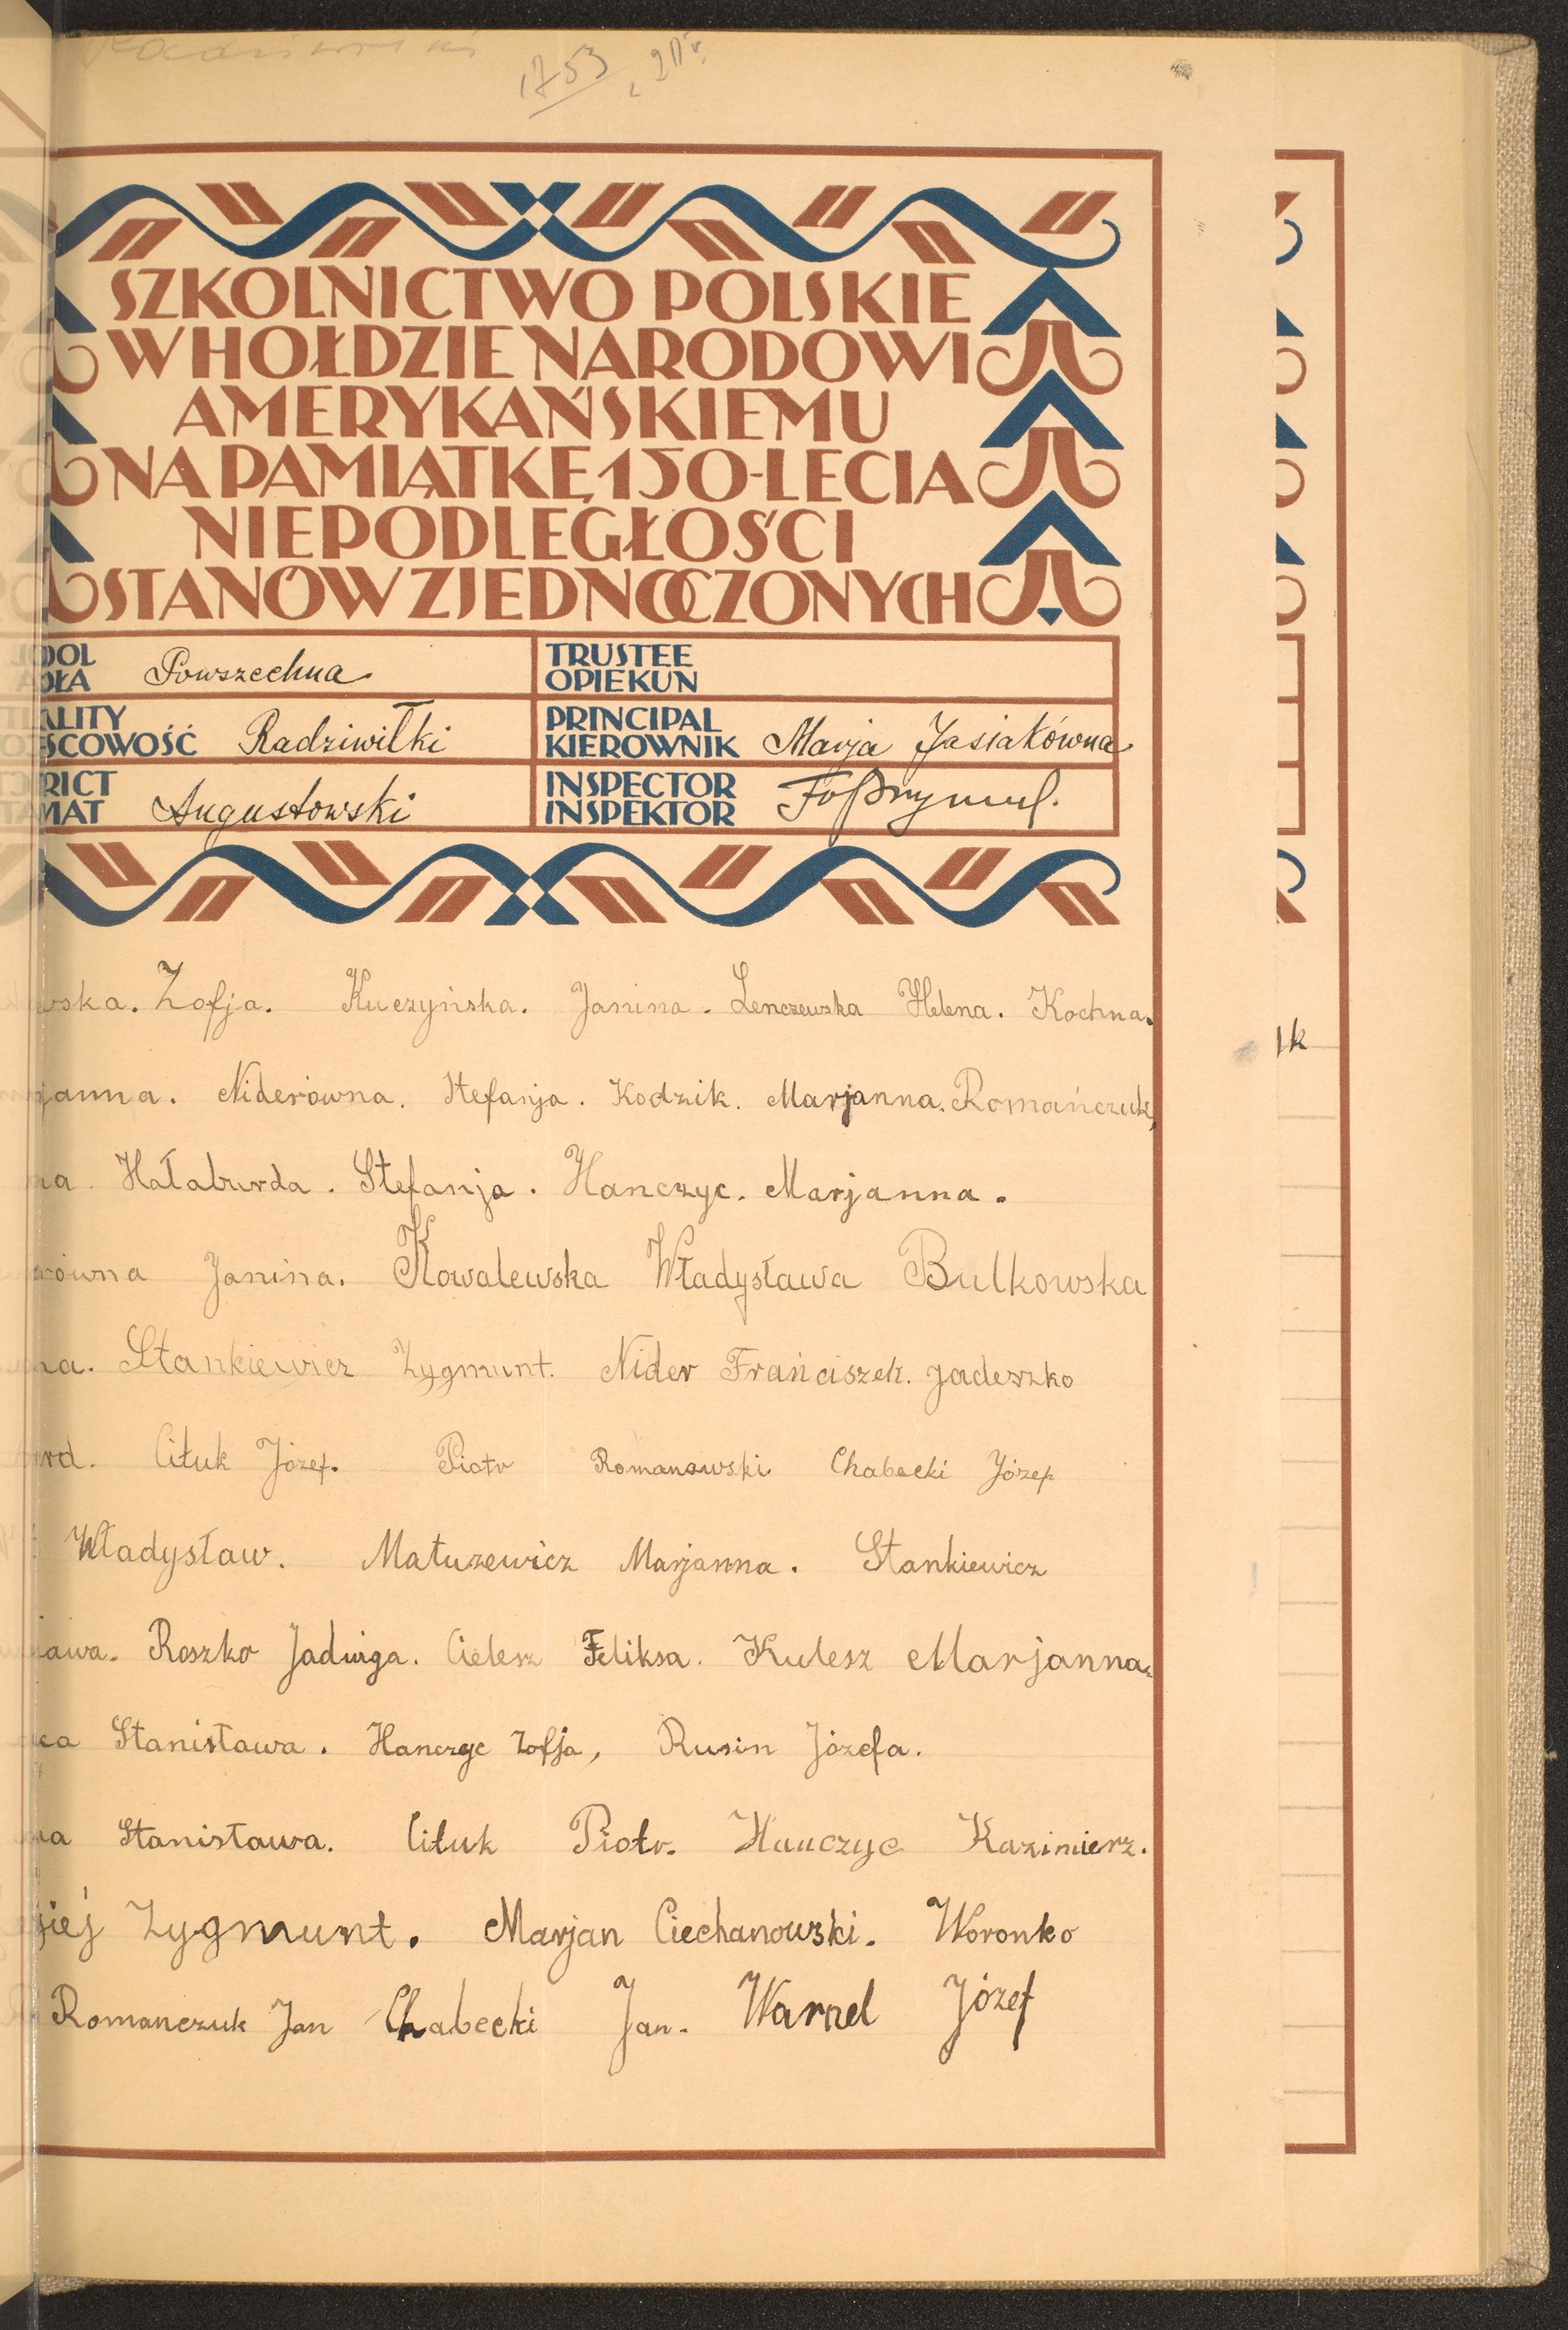 1753
SZKOLNICTWO POLSKIE
W HOŁDZIE NARODOWI
AMERYKAŃSKIEMU
NA PAMIĄTKĘ 150-LECIA
NIEPODLEGŁOŚCI
STANÓW ZJEDNOCZONYCH
OOL
OŁA Powszechna
TRUSTEE
OPIEKUN
ALITY
SCOWOŚĆ Radziwiłki
PRINCIPAL
KIEROWNIK Marja Jasiakówna
RICT
MAT Augustowski
INSPECTOR
INSPEKTOR
wska. Zofja. Kuczyńska. Janina. Lenczewska Helena. Kochna.
janna. Niderówna. Stefanja. Kodzik. Marjanna. Romańczuk,
na. Hałaburda. Stefanja. Hanczyc. Marjanna.
równa Janina. Kowalewska Władysława Bulkowska
na. Stankiewicz Zygmunt. Nider Frańciszek. Jadeszko
rd. Cituk Józef. Piotr Romanowski Chabecki Józef
Władysław. Matuzewicz Marjanna. Stankiewicz
ława. Roszko Jadwiga. Cielesz Feliksa. Kulesz Marjanna.
ka Stanisława. Hanczyc Zofja, Rusin Józefa.
na Stanisława. Cituk Piotr. Hanczyc Kazimierz.
jiej Zygmunt. Marjan Ciechanowski. Woronko
Romanczuk Jan Chabecki Jan. Warnel Józef